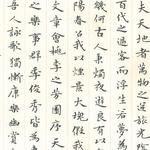 夫天地者萬物之逆旅光
百代之過客而浮生若夢為
幾何古人秉燭夜遊良有以
陽春召我以煙景大塊假我
文章會桃李之芳園序天
之樂事群季俊秀皆為惠
吾人詠歌獨慚康樂幽